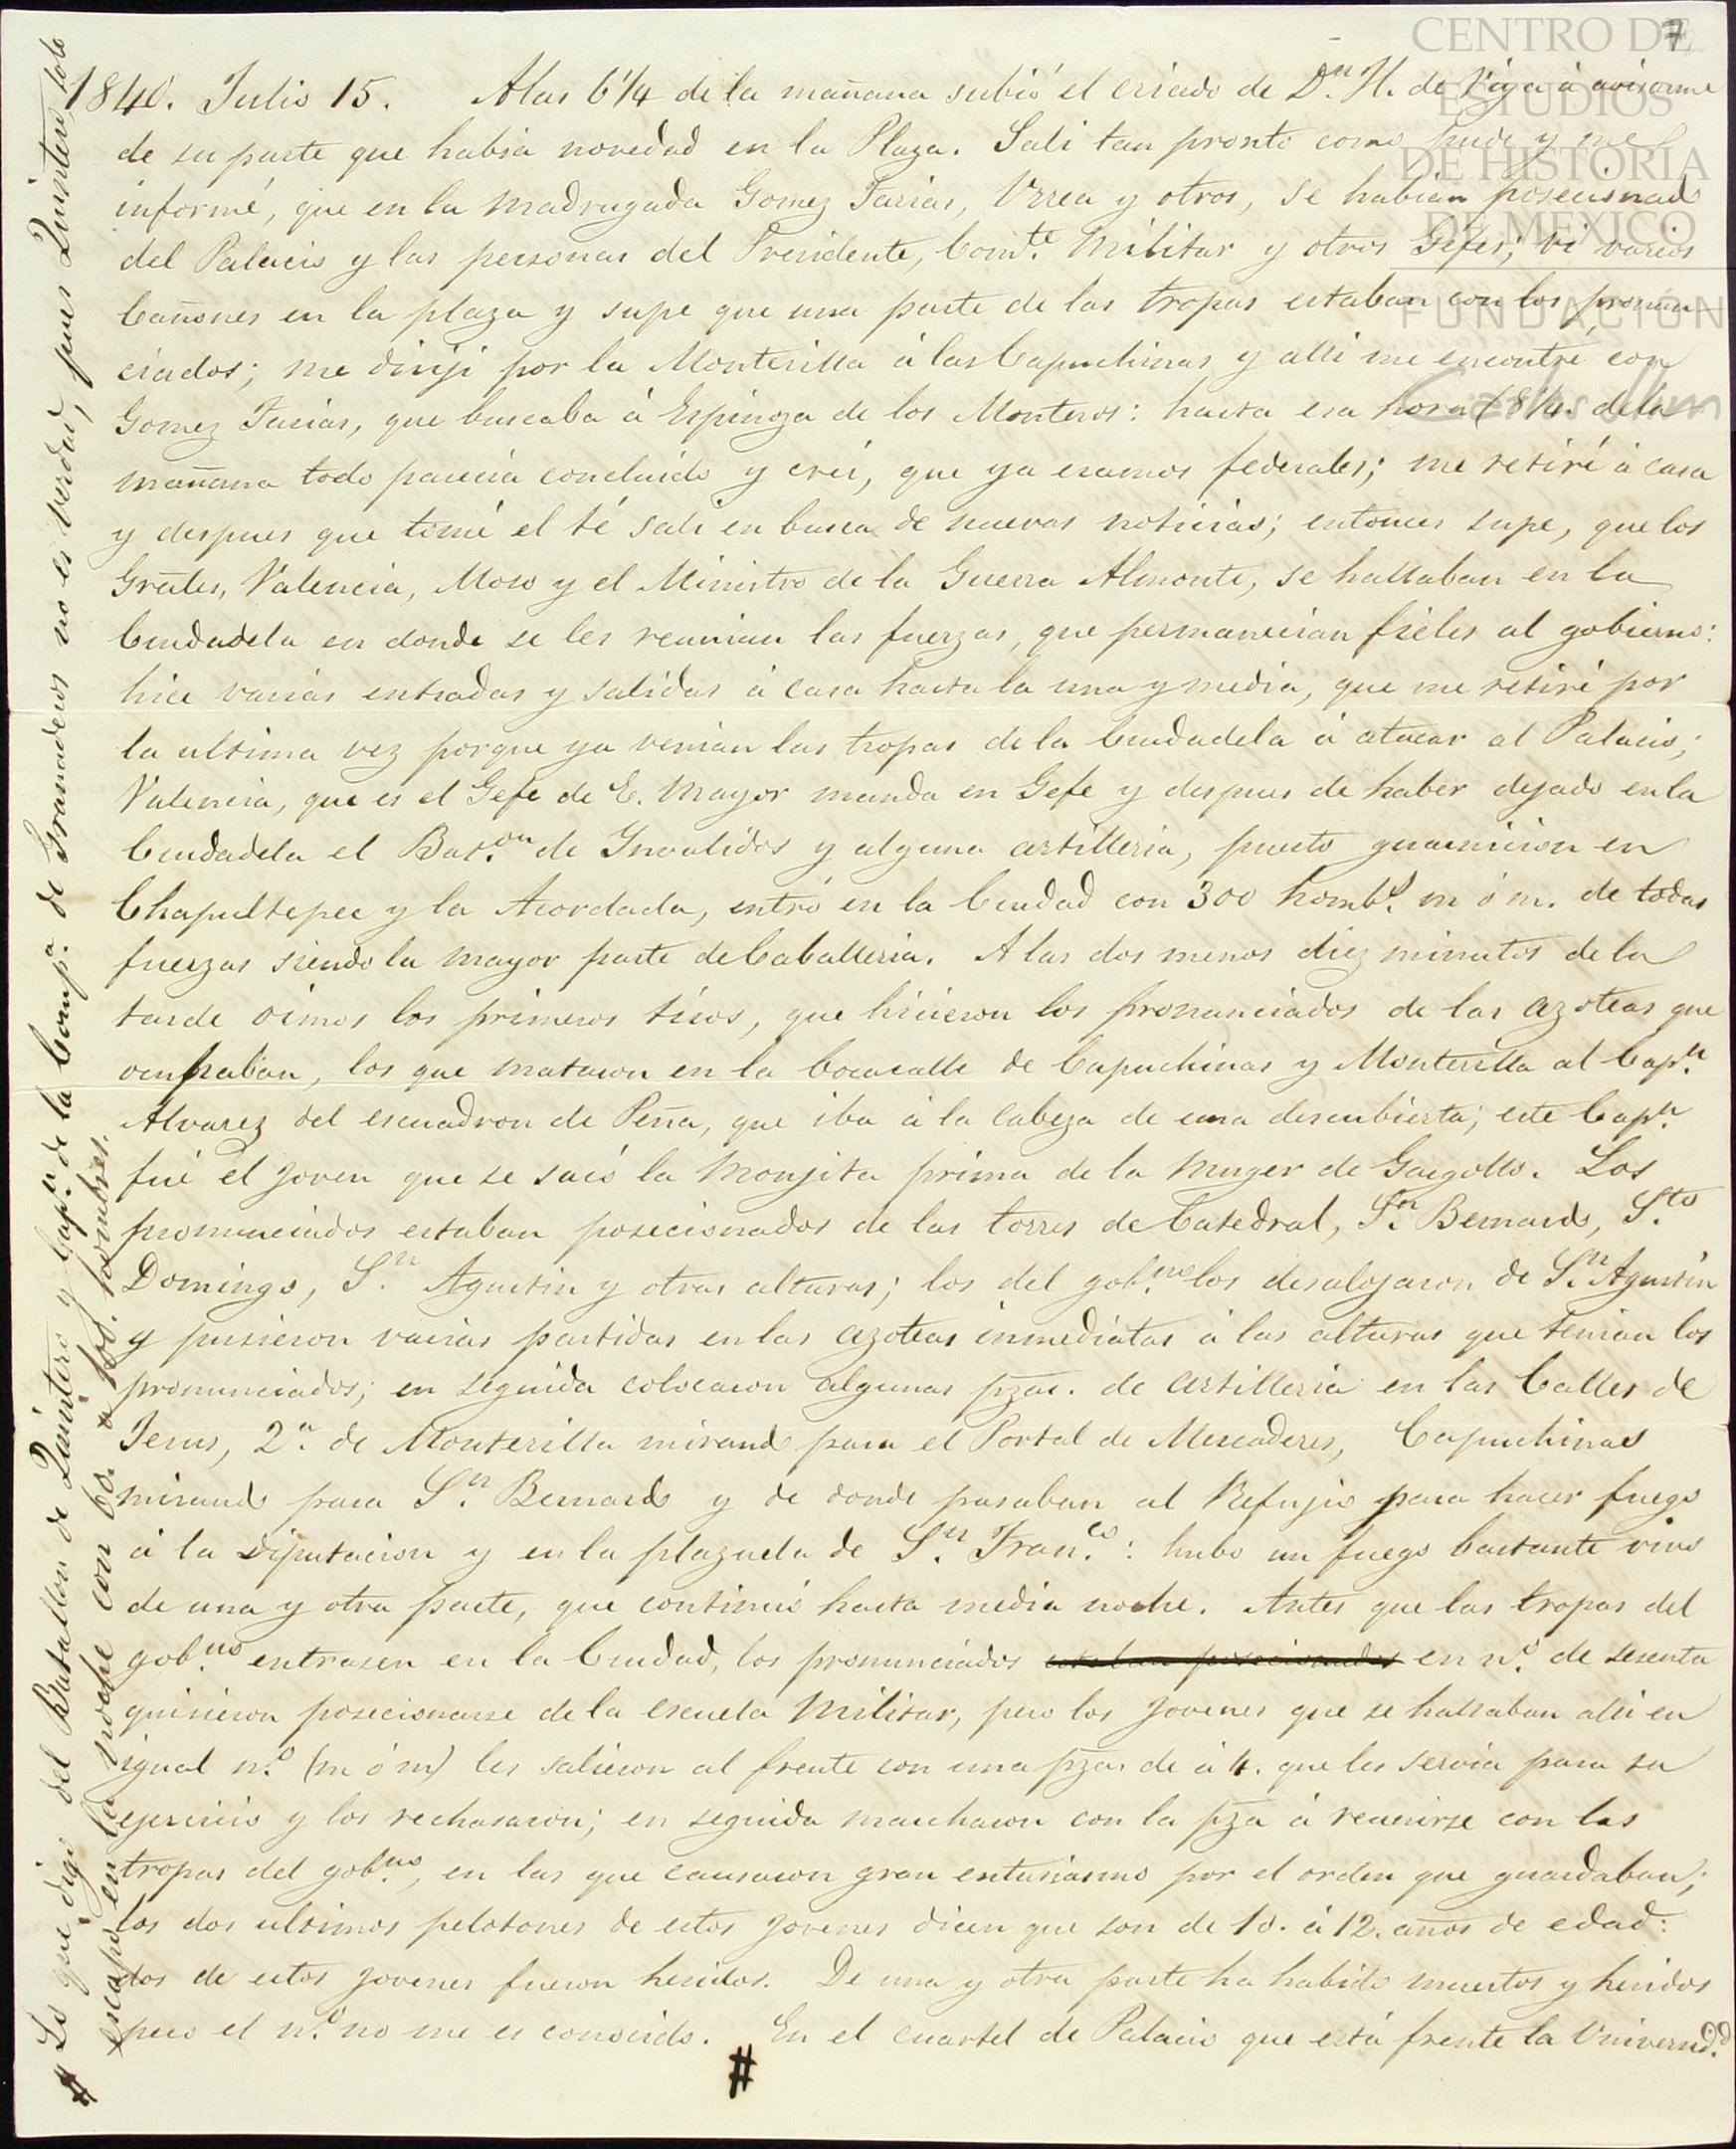 CENTRO DE
ESTUDIOS
DE HISTORIA
DE MEXICO
FUNDACIÓN
Carlos Slim
7
1840. Julio 15. Alas 6¼ de la mañana subió el criado de Dn. H. de Viya á avisarme
de su parte que habia novedad en la Plaza. Sali tan pronto como pude y me
informé, que en la madrugada Gomez Farias, Urrea y otros, se habian posecionado
del Palacio y las personas del Presidente, Comte. Militar y otros Gefes; vi varios
Cañones en la plaza y supe que una parte de las tropas estaban con los pronun-
ciados; me diriji por la Monterilla á las Capuchinas y alli me encontré con
Gomez Farias, que buscaba á Espinoza de los Monteros: hasta esa hora (8¼. dela
mañana todo parecia concluido y crei, que ya eramos federales; me retiré á casa
y despues que tomé el té sali en busca de nuevas noticias; entonces supe, que los
Grãles, Valencia, Moso y el Ministro de la Guerra Almonte, se hallaban en la
Ciudadela en donde se les reunian las fuerzas, que permanecian fieles al gobierno:
hice varias entradas y salidas á casa hasta la una y media, que me retiré por
la ultima vez porque ya venian las tropas de la Ciudadela á atacar al Palacio;
Valencia, que es el Gefe de E. Mayor manda en Gefe y despues de haber dejado en la
Ciudadela el Bat.on de Invalidos y alguna artilleria, puesto guarnicion en
Chapultepec y la Acordada, entró en la Ciudad con 300 homb.s m ó m. de todas
fuerzas siendo la mayor parte de Caballeria. A las dos menos diez minutos de la
tarde oimos los primeros tiros, que hicieron los pronunciados de las azoteas que
ocupaban, los que mataron en la bocacalle de Capuchinas y Monterilla al Capn.
Alvarez del escuadron de Peña, que iba á la cabeza de una descubierta; este Capn.
fué el joven que se sacó la Monjita prima de la Muger de Gargollo. Los
pronunciados estaban posecionados de las torres de Catedral, Sn. Bernardo, Sto.
Domingo, Sn. Agustin y otras alturas; los del gob.no los desalojaron de Sn. Agustin
y pusieron varias partidas en las azoteas inmediatas á las alturas que tenian los
pronunciados; en seguida colocaron algunas pzas. de artilleria en las Calles de
Jesus, 2a. de Monterilla mirando para el Portal de Mercaderes, Capuchinas
mirando para Sn. Bernardo y de donde pasaban al Refujio para hacer fuego
á la Diputacion y en la plazuela de Sn. Fran.co: hubo un fuego bastante vivo
de una y otra parte, que continuó hasta media noche. Antes que las tropas del
gob.no entrasen en la Ciudad, los pronunciados estaban posecionados en no. de sesenta
quisieron posecionarse de la escuela Militar, pero los jovenes que se hallaban alli en
igual no. (m ó m) les salieron al frente con una pza de á 4. que les servia para su
ejercicio y los rechasaron; en seguida marcharon con la pza á reunirse con las
tropas del gob.no, en las que causaron gran entusiasmo por el orden que guardaban;
los dos ultimos pelotones de estos jovenes dicen que son de 10. á 12. años de edad:
dos de estos jovenes fueron heridos. De una y otra parte ha habido muertos y heridos
pero el no. no me es conocido. En el cuartel de Palacio que está frente la Universd.d
#
# Lo que digo del Batallon de Quintero y Capn. de la Comp.a de Granaderos no es verdad, pues Quintero solo
escapó en la noche con 60. a 100. hombres.